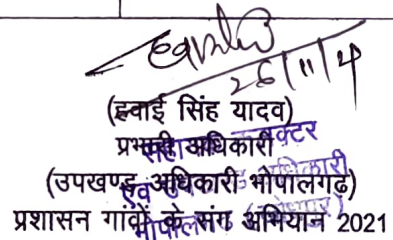 26/11/21
(हवाई सिंह यादव)
प्रभारी अधिकारी
(उपखण्ड अधिकारी भोपालगढ़)
प्रशासन गांवों के संग अभियान 2021